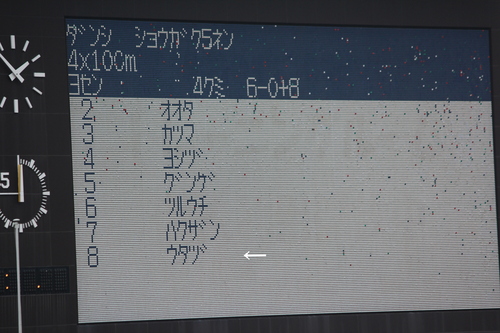 ダンシ ショウガク5ネン
4x100m
ヨセン 4クミ 6-0+8
2 オオタ
3 カツマ
4 ヨシヅ
5 グンゲ
6 ツルウチ
7 ハクサン
8 ウタヅ ←
5